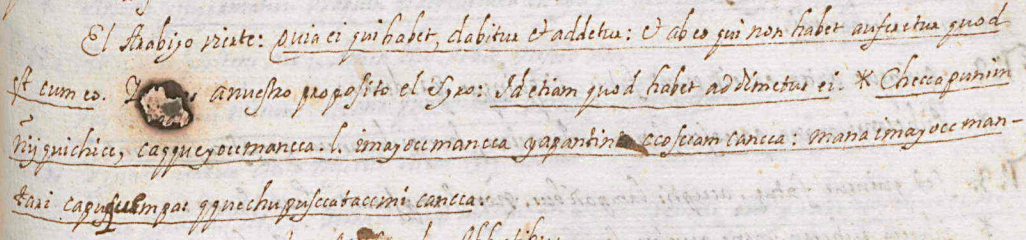 El Arabigo vierte: Quia ei qui habet, dabitur et addetur: et ab eo qui non habet auferetur quod
st cum eo. anuestro proposito el Syro: Id etiam quod habet addimetur ei. * Checcapunim
ñijquichicc, capqueyoccmancca. l. imayoccmancca yapantin ccoscam cancca: mana imayocc man-
tari capusquempac qquechupusccataccmi cancca